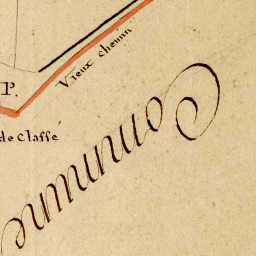 Vieux chemin
P.
de Classe
Commune